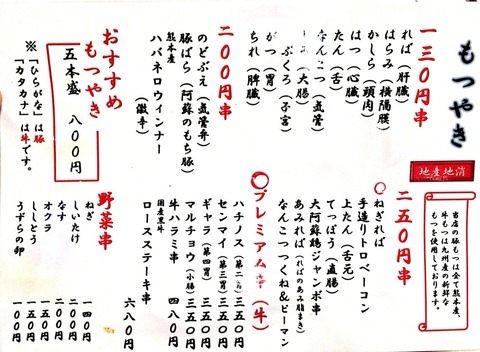 もつやき
地産地消
当店の豚もつは全て熊本産、
牛もつは九州産の新鮮な
もつを使用しております。
一三〇円串
れば(肝臓)
はらみ(横隔膜)
かしら(頭肉)
はつ(心臓)
たん(舌)
なんこつ(気管)
(大腸)
ぶくろ(子宮)
がつ(胃)
ちれ(脾臓)
二〇〇円串
のどぶえ(気管弁)
豚ばら(阿蘇のもち豚)
熊本産
ハバネロウィンナー
(激辛)
おすすめ
もつやき
五本盛 八〇〇円
※「ひらがな」は豚
「カタカナ」は牛です。
二五〇円串
ねぎれば
手造りトロベーコン
上たん(舌元)
てっぽう(直腸)
大阿蘇鶏ジャンボ串
あみれば(ればのあみ脂まき)
なんこつつくね&ピーマン
プレミアム串(牛)
ハチノス(第二胃)三五〇円
センマイ(第三胃)三五〇円
ギャラ(第四胃)三五〇円
マルチョウ(小腸)三五〇円
牛ハラミ串 四八〇円
国産黒牛
ロースステーキ串
六八〇円
野菜串
ねぎ 一四〇円
しいたけ 二〇〇円
なす 二〇〇円
オクラ 一五〇円
ししとう 一五〇円
うずらの卵 一〇〇円